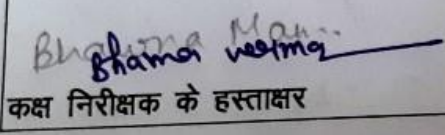 Bhama Verma
कक्ष निरीक्षक के हस्ताक्षर